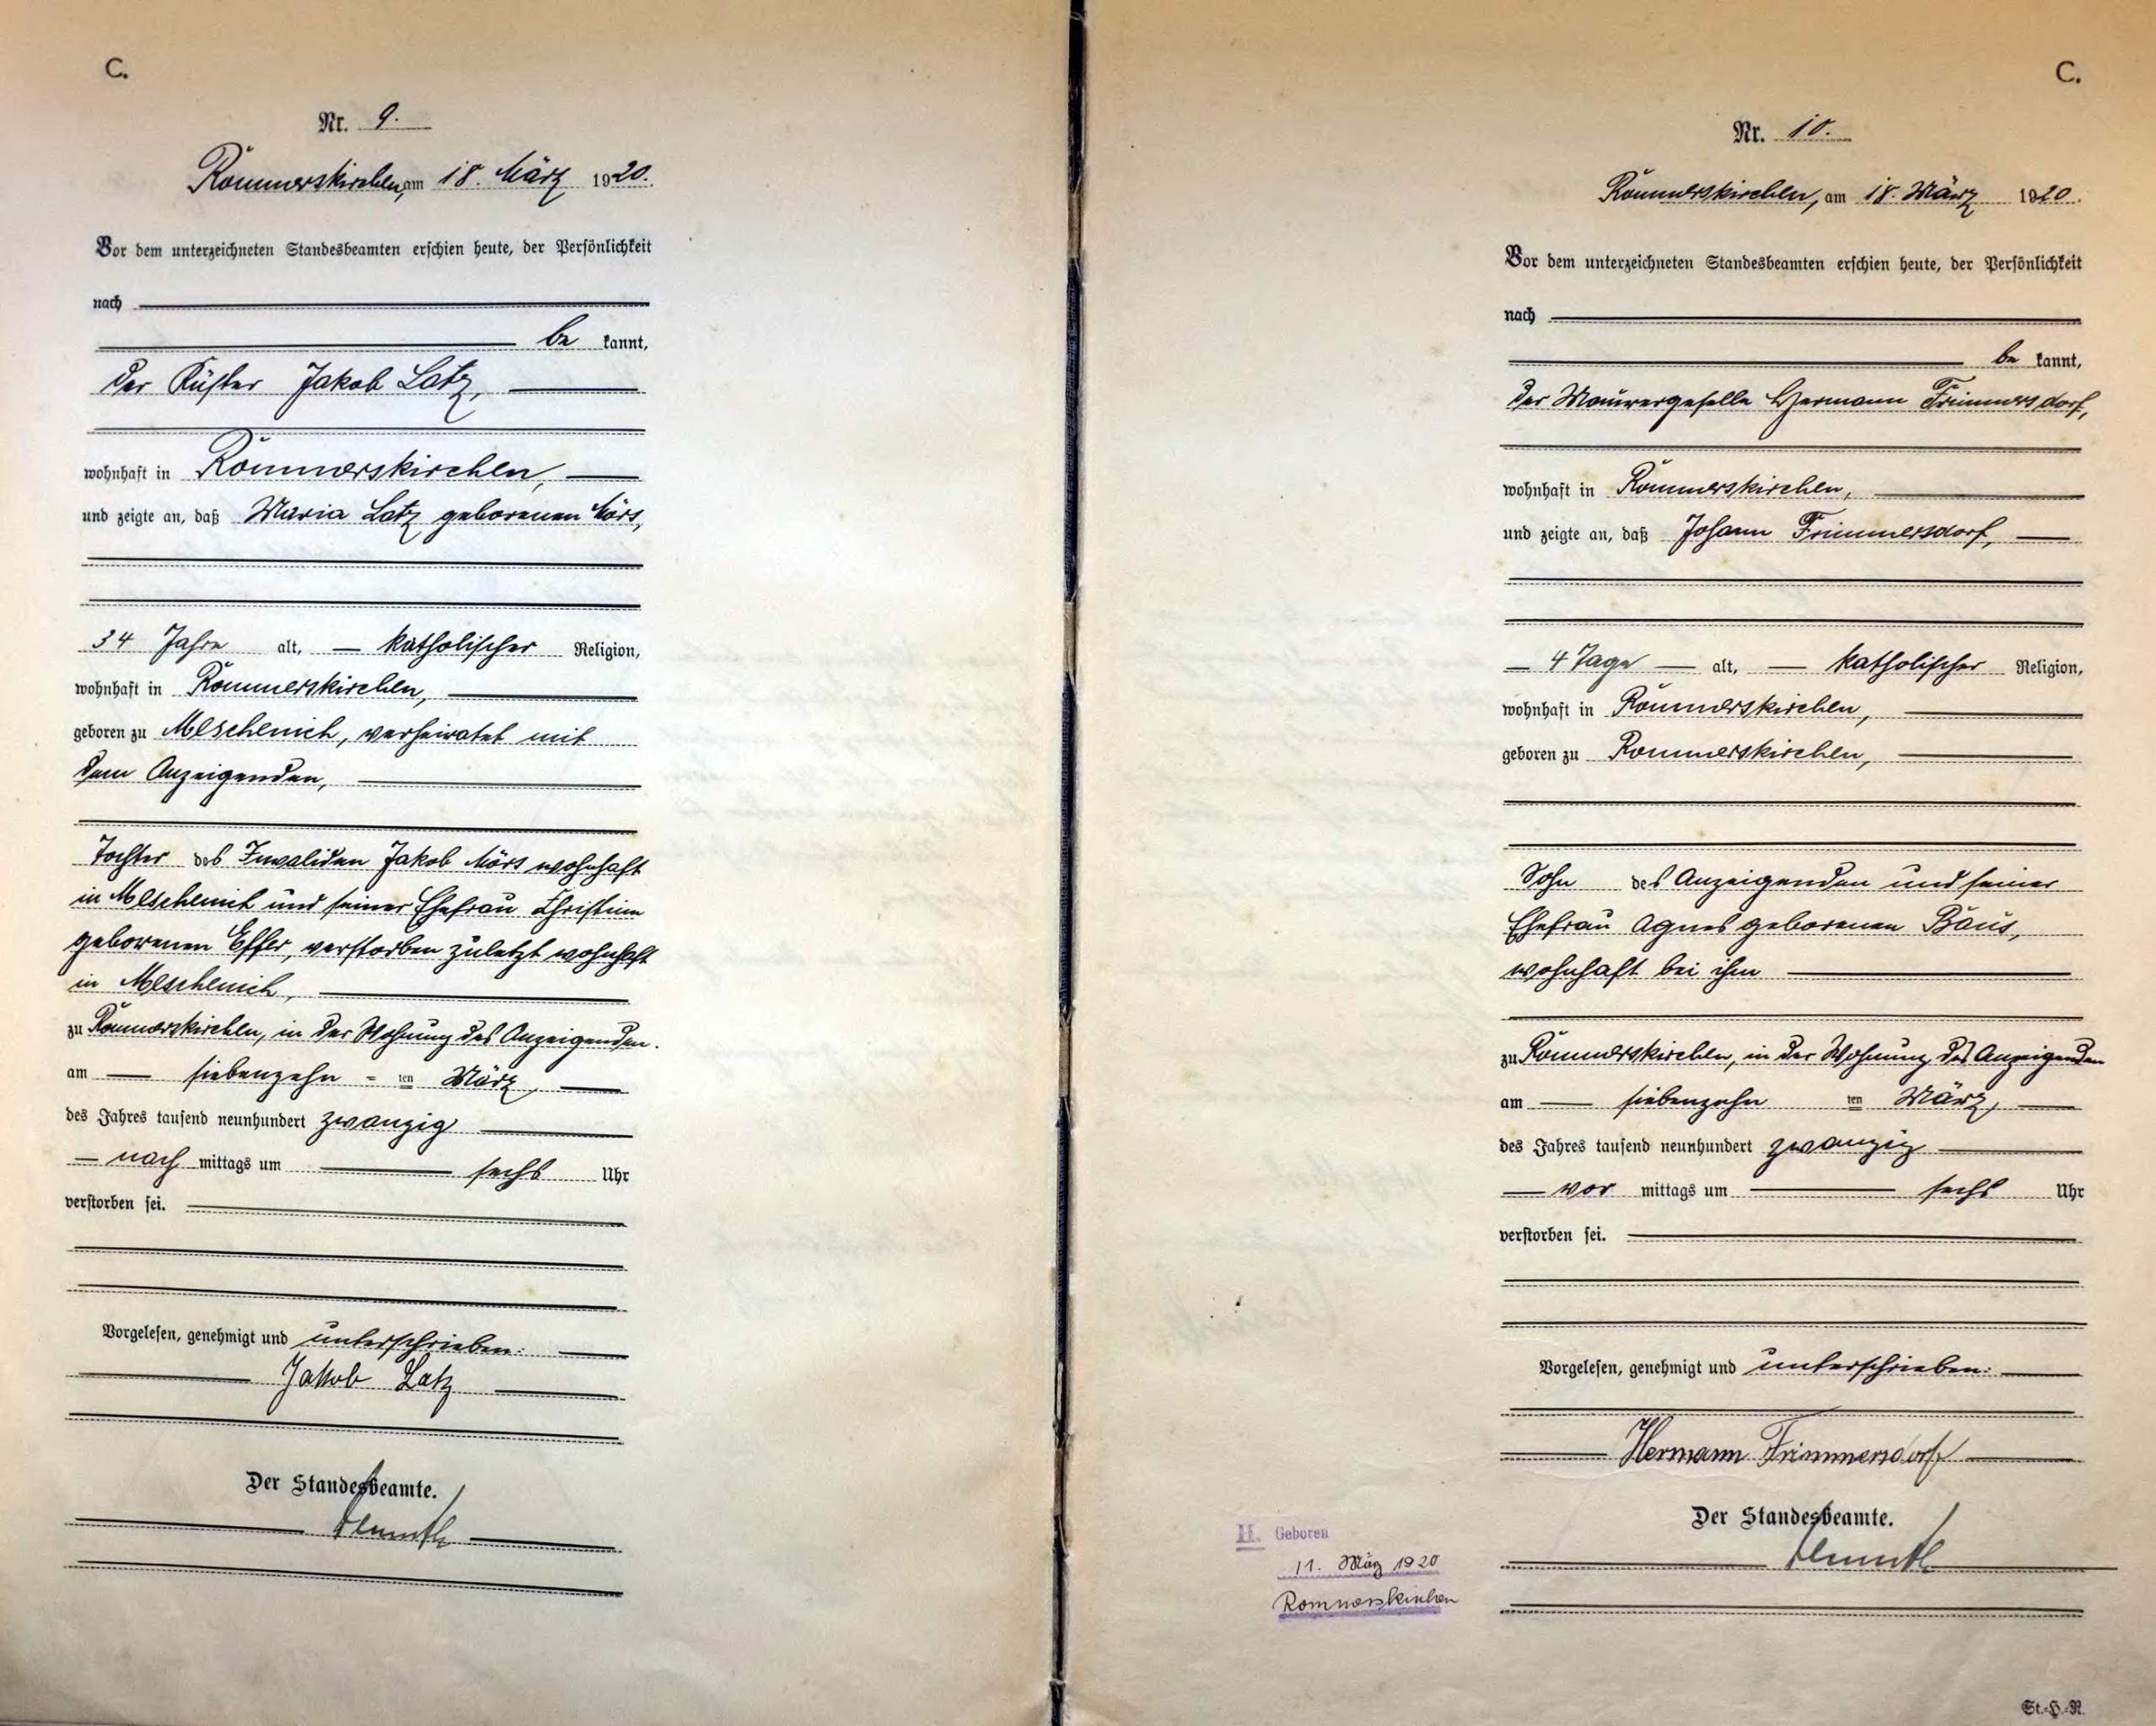 C.
Nr. 9.
Rommerskirchen, am 18. März 1920.
Vor dem unterzeichneten Standesbeamten erschien heute, der Persönlichkeit
nach
be kannt,
der Küster Jakob Latz,
wohnhaft in Rommerskirchen,
und zeigte an, daß Maria Latz geborenen Mörs,
34 Jahre alt, katholischer Religion,
wohnhaft in Rommerskirchen,
geboren zu Meschenich, verheiratet mit
dem Anzeigenden,
Tochter des Invaliden Jakob Mörs wohnhaft
in Meschenich und seiner Ehefrau Christina
geborenen Effer, verstorben zuletzt wohnhaft
in Meschenich,
zu Rommerskirchen, in der Wohnung des Anzeigenden.
am siebenzehn ten März,
des Jahres tausend neunhundert zwanzig
nach mittags um sechs Uhr
verstorben sei.
Vorgelesen, genehmigt und unterschrieben:
Jakob Latz
Der Standesbeamte.
C.
Nr. 10.
Rommerskirchen, am 18. März 1920.
Vor dem unterzeichneten Standesbeamten erschien heute, der Persönlichkeit
nach
be kannt,
der Maurergeselle Hermann Frimmersdorf,
wohnhaft in Rommerskirchen,
und zeigte an, daß Johann Frimmersdorf,
4 Tage alt, katholischer Religion,
wohnhaft in Rommerskirchen,
geboren zu Rommerskirchen,
Sohn des Anzeigenden und seiner
Ehefrau Agnes geborenen Baus,
wohnhaft bei ihm
zu Rommerskirchen, in der Wohnung des Anzeigenden
am siebenzehn ten März,
des Jahres tausend neunhundert zwanzig
vor mittags um sechs Uhr
verstorben sei.
Vorgelesen, genehmigt und unterschrieben:
Hermann Frimmersdorf
Der Standesbeamte.
H. Geboren
11. März 1920
Rommerskirchen
St.-H.-R.